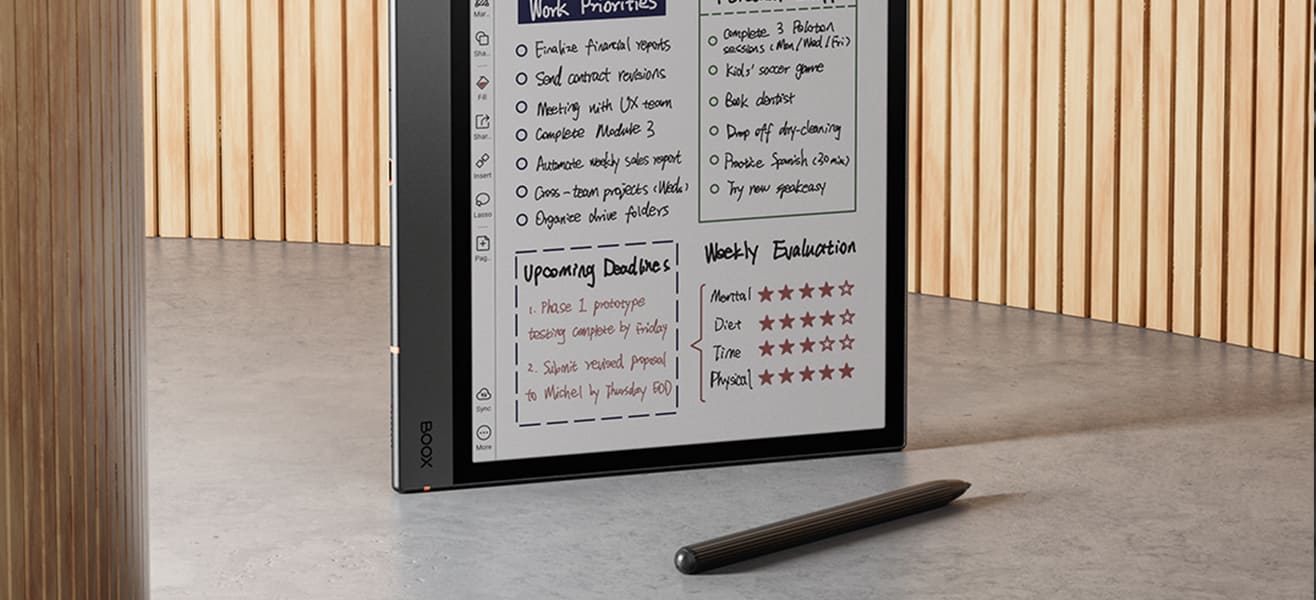 Work Priorities
Finalize financial reports
Send contract revisions
Meeting with UX team
Complete Module 3
Automate weekly sales report
Cross-team projects (Weds)
Organize drive folders
Complete 3 Peloton
sessions (Mon/Wed/Fri)
Kids' soccer game
Book dentist
Drop off dry-cleaning
Practice Spanish (30 min)
Try new speakeasy
Upcoming Deadlines
1. Phase 1 prototype
testing complete by Friday
2. Submit revised proposal
to Michel by Thursday EOD
Weekly Evaluation
Mental ★★★★☆
Diet ★★★★☆
Time ★★★☆☆
Physical ★★★★★
Mar..
Sha..
Fill
Shar..
Insert
Lasso
Pag..
Sync
More
BOOX